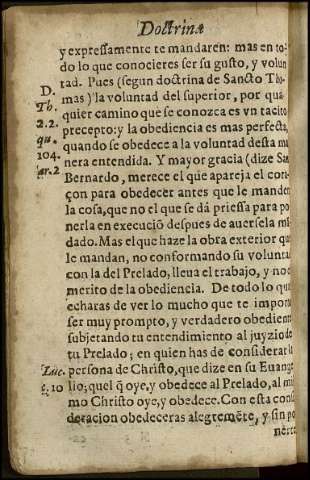 Doctrinæ
y expressamente te mandaren: mas en to-
do lo que conocieres ser su gusto, y volun
tad. Pues (segun doctrina de Sancto Tho-
mas) la voluntad del superior, por qua
quier camino que se conozca es vn tacito
precepto: y la obediencia es mas perfecta,
quando se obedece a la voluntad desta ma
nera entendida. Y mayor gracia (dize San
Bernardo, merece el que apareja el cora
çon para obedecer antes que le manden
la cosa, que no el que se dá priessa para po
nerla en execuciō despues de auersela mā
dado. Mas el que haze la obra exterior que
le mandan, no conformando su volunta
con la del Prelado, lleua el trabajo, y no e
merito de la obediencia. De todo lo que
echaras de ver lo mucho que te importa
ser muy prompto, y verdadero obedient
subjetando tu entendimiento al juyzio de
tu Prelado; en quien has de considerar la
persona de Christo, que dize en su Euange
lio; quel q̄ oye, y obedece al Prelado, al mi
mo Christo oye, y obedece. Con esta consi
deracion obedeceras alegremēte, y sin po
nerte
D.
Th.
2.2.
qu.
104.
ar.2
Luc.
c. 10